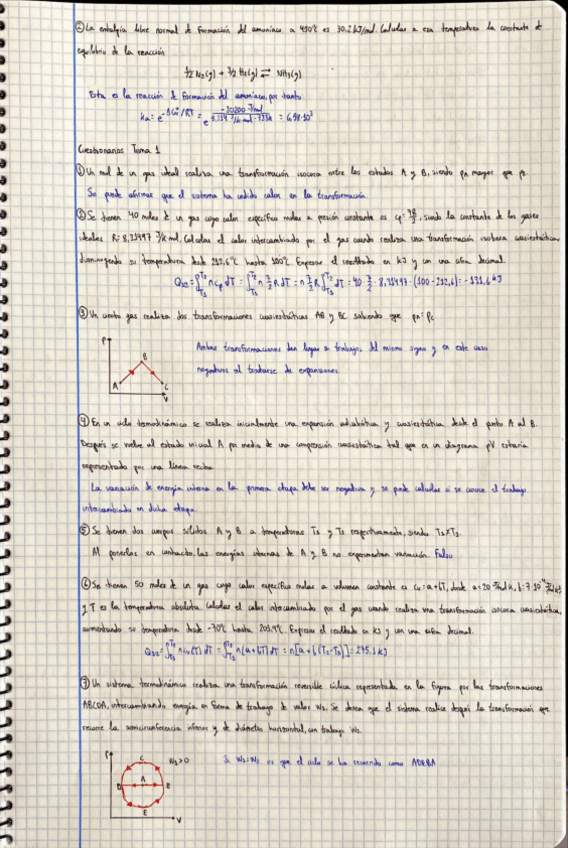 ② La entalpía libre normal de formación del amoniaco a 450°C es 30.2 kJ/mol. Calcular a esa temperatura la constante de
equilibrio de la reacción
½ N₂(g) + 3/2 H₂(g) ⇌ NH₃(g)
Esta es la reacción de formación del amoniaco, por tanto
Cuestionarios Tema 1
① Un mol de un gas ideal realiza una transformación isocora entre los estados A y B, siendo pA mayor que pB.
Se puede afirmar que el sistema ha cedido calor en la transformación.
② Se tienen 40 moles de un gas cuyo calor específico molar a presión constante es siendo la constante de los gases
ideales R= 8,31447 J/K mol. Calcular el calor intercambiado por el gas cuando realiza una transformación isobara cuasiestática
disminuyendo su temperatura desde 212,6°C hasta 100°C. Expresar el resultado en kJ y con una cifra decimal.
③ Un cierto gas realiza dos transformaciones cuasiestáticas AB y BC sabiendo que pA=pC
P
B
A
C
V
Ambas transformaciones dan lugar a trabajos del mismo signo y en este caso
negativos al tratarse de expansiones
④ En un ciclo termodinámico se realiza inicialmente una expansión adiabática y cuasiestática desde el punto A al B.
Después se vuelve al estado inicial A por medio de una compresión cuasiestática tal que en un diagrama pV estaría
representado por una línea recta.
La variación de energía interna en la primera etapa debe ser negativa y se puede calcular si se conoce el trabajo
intercambiado en dicha etapa.
⑤ Se tienen dos cuerpos sólidos A y B a temperaturas T₁ y T₂ respectivamente, siendo
Al ponerlos en contacto, las energías internas de A y B no experimentan variación. Falso
⑥ Se tienen 50 moles de un gas cuyo calor específico molar a volumen constante es Cv=a+bT, donde
y T es la temperatura absoluta. Calcular el calor intercambiado por el gas cuando realiza una transformación isocora cuasiestática,
aumentando su temperatura desde -70°C hasta Expresar el resultado en kJ y con una cifra decimal.
⑦ Un sistema termodinámico realiza una transformación reversible cíclica representada en la figura por las transformaciones
ABCDA, intercambiando energía en forma de trabajo de valor W₁. Se desea que el sistema realice después la transformación que
recorre la semicircunferencia inferior y de diámetro horizontal, con trabajo W₂.
P
C
D
A
B
E
V
W₁>0
Si es que el ciclo se ha recorrido como ADEBA